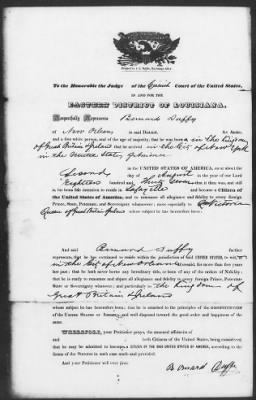 To the Honorable the Judge of the Circuit Court of the United States,
IN AND FOR THE
EASTERN DISTRICT OF LOUISIANA.
Respectfully Represents Bernard Duffy
of New Orleans in said District,
and a free white person, and of the age of majority, that he was born in the Kingdom
of Great Britain & Ireland that he arrived in the City of New York
in the United States,
in the UNITED STATES OF AMERICA, on or about the
Second day of August in the year of our Lord
Eighteen hundred and that it then was, and still
is his intention to reside in Lafayette and become a Citizen of
the United States of America, and to renounce all allegiance and fidelity to every foreign
Prince, State, Potentate, and Sovereignty whatsoever; and especially to Victoria
Queen of Great Britain & Ireland whose subject he has heretofore been;
And said Bernard Duffy further
represents, that he has continued to reside within the jurisdiction of said UNITED STATES, to wit:
in the City of New Orleans for more than five years
last past; that he hath never borne any hereditary title, or been of any of the orders of Nobility;
that he is ready to renounce and abjure all allegiance and fidelity to every foreign Prince, Potentate,
State or Sovereignty whatsoever; and particularly to the Kingdom of
Great Britain & Ireland
whose subject he has heretofore been; that he is attached to the principles of the CONSTITUTION OF
THE UNITED STATES OF AMERICA, and well disposed toward the good order and happiness of
the same.
WHEREFORE, your Petitioner prays, the annexed affidavits of
and
both Citizens of the United States, being considered,
that he may be admitted to become a CITIZEN OF THE SAID UNITED STATES OF AMERICA, according to
the forms of the Statutes in such case made and provided.
And your Petitioner will ever pray.
Bernard Duffy